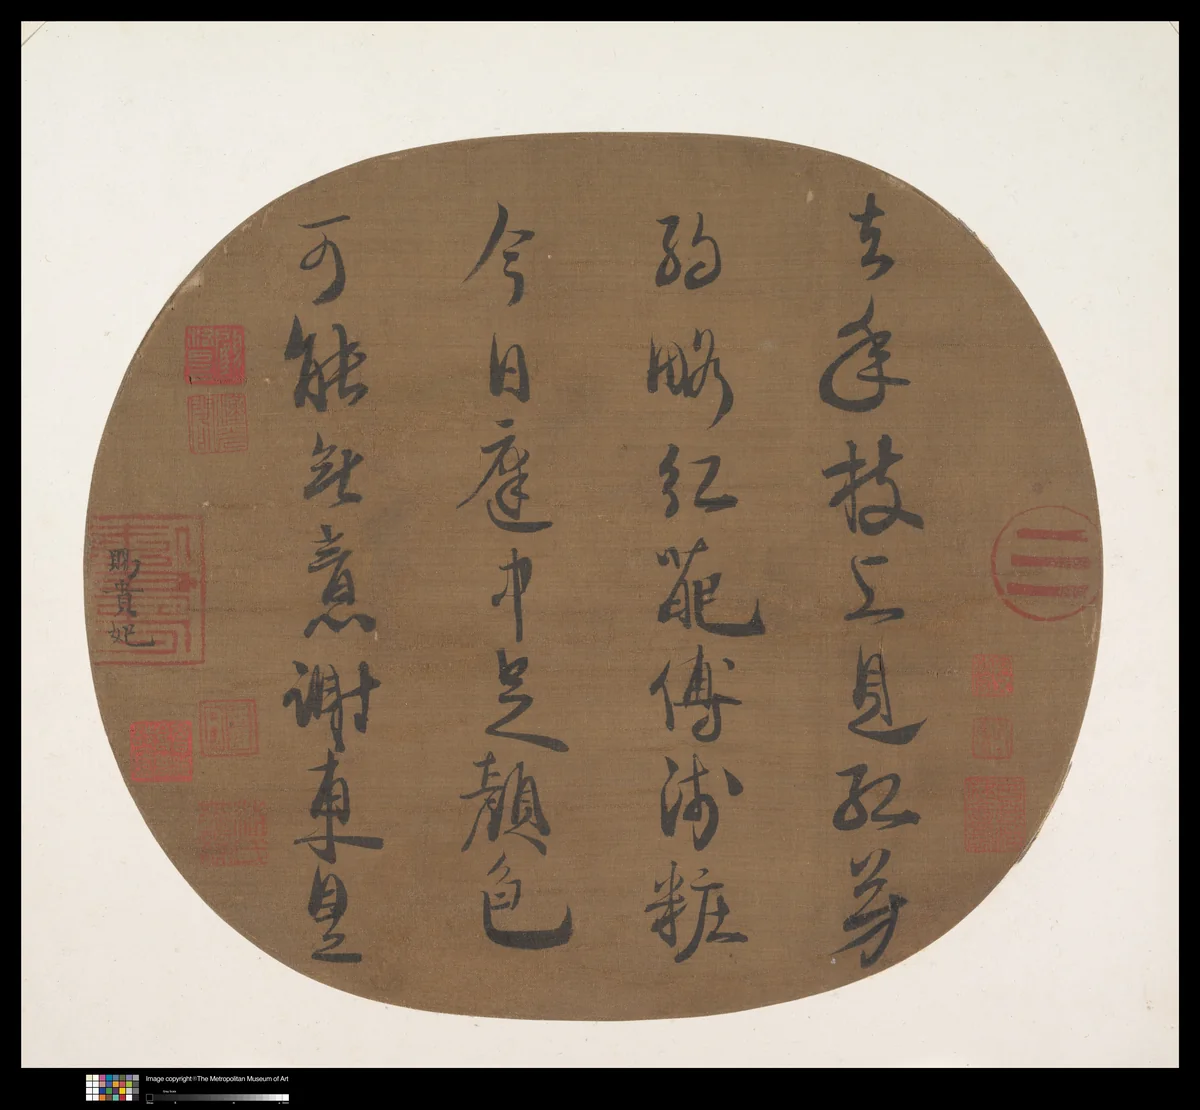 去年枝上見紅芳
約略紅葩傅淺粧
今日庭中足顏色
可能無意謝東皇
賜貴妃
Image copyright © The Metropolitan Museum of Art